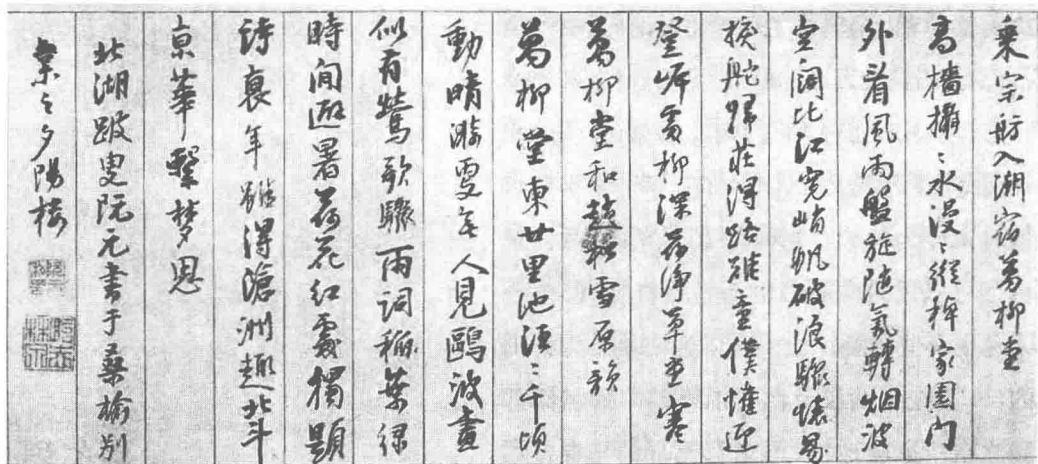 乘宗舫入湖宿萬柳堂
高檣攝〻水漫〻縱棹家園門
外看風雨盤旋隨氣轉烟波
空闊比江寬峭帆破浪驟懷易
捩舵歸莊得路難童僕懽迎
登岸處柳深荷淨草堂寒
萬柳堂和趙松雪原韻
萬柳堂東廿里池湏〻千頃
動晴漪更無人見鷗波畫
似有鶯歌驟雨詞稱葉綠
時閒避暑荷花紅處獨題
詩衰年雖得滄洲趣北斗
京華繫夢思
北湖跛叟阮元書于桑榆別
業之夕陽樓